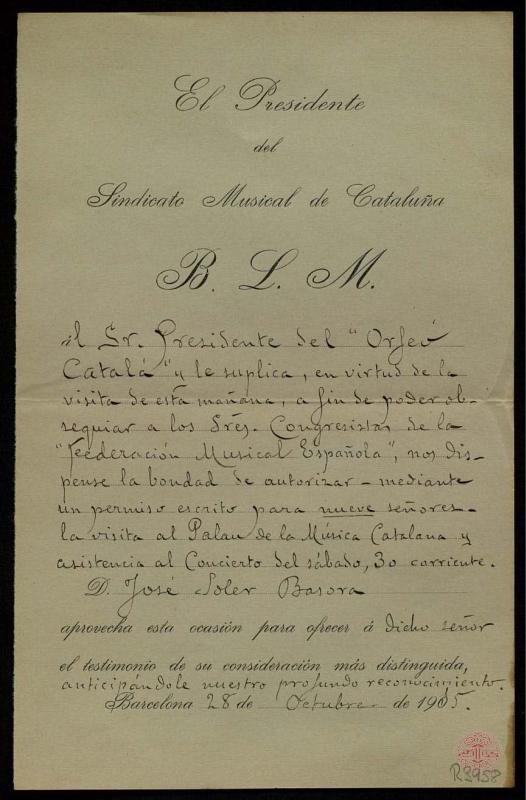 El Presidente
del
Sindicato Musical de Cataluña
B. L. M.
ál Sr. Presidente del "Orfeó
Catalá" y le suplica, en virtud de la
visita de esta mañana, a fin de poder ob-
sequiar a los Sres. Congresistas de la
"Feederación Musical Española", nos dis-
pense la bondad de autorizar - mediante
un permiso escrito para nueve señores -
la visita al Palau de la Música Catalana y
asistencia al Concierto del sábado, 30 corriente.
D. José Soler Basora
aprovecha esta ocasión para ofrecer á dicho señor
el testimonio de su consideración más distinguida,
anticipándole nuestro profundo reconocimiento.
Barcelona 28 de Octubre de 1915.
R3958